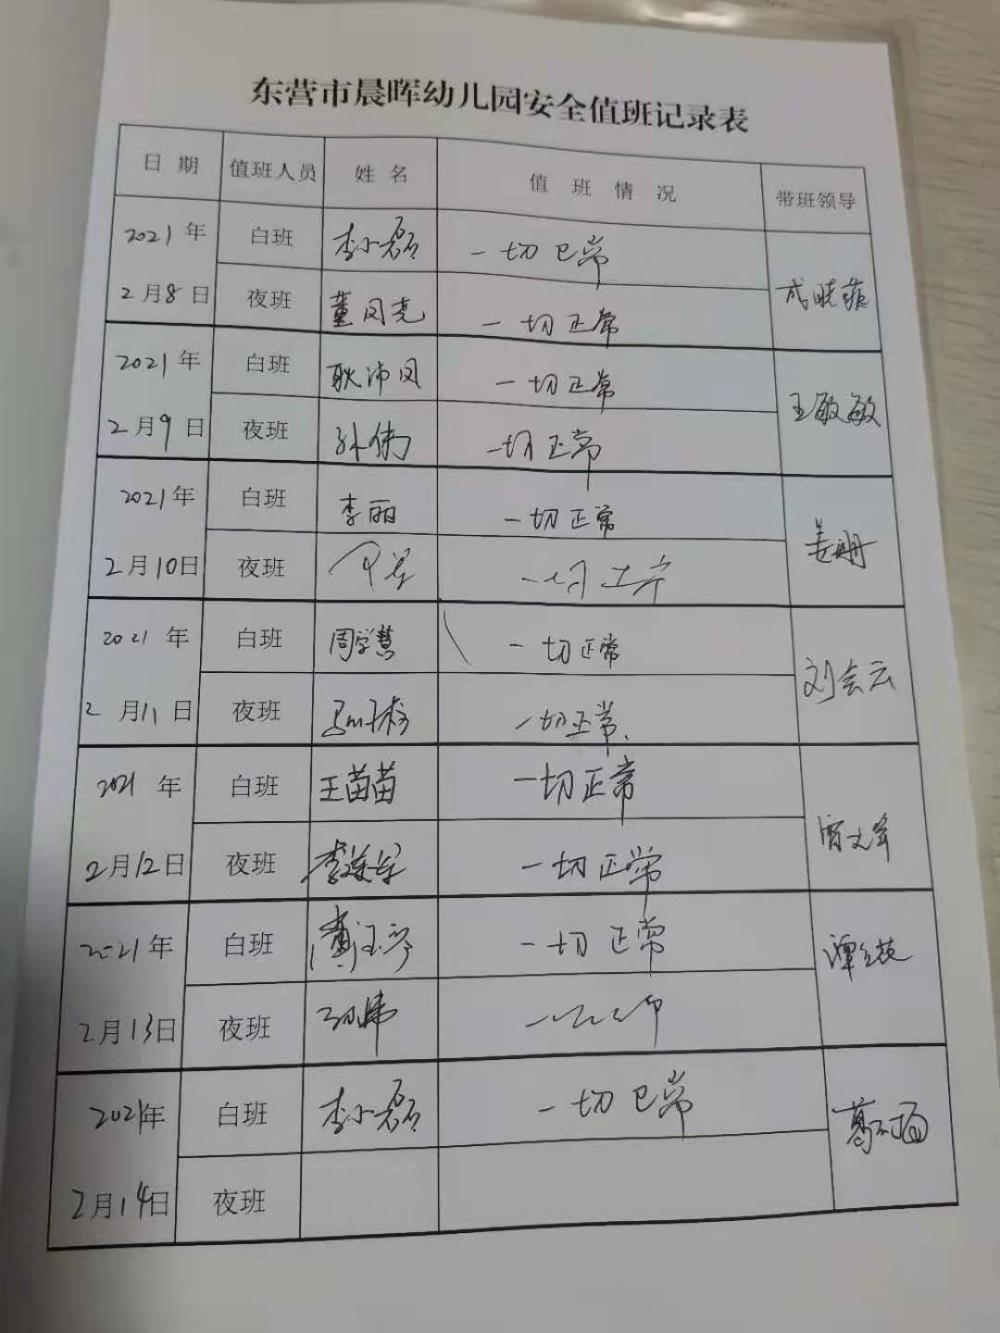 东营市晨晖幼儿园安全值班记录表
日期 值班人员 姓名 值班情况 带班领导
2021年 白班 李小磊 一切正常
2月8日 夜班 董凤亮 一切正常
成晓菲
2021年 白班 耿沛凤 一切正常
2月9日 夜班 孙伟 一切正常
王敏敏
2021年 白班 李丽 一切正常
2月10日 夜班 一切正常
姜珊
2021年 白班 周学慧 一切正常
2月11日 夜班 一切正常.
刘会云
2021年 白班 王苗苗 一切正常
2月12日 夜班 一切正常
2021年 白班 一切正常
2月13日 夜班
谭
2021年 白班 李小磊 一切正常
2月14日 夜班
葛